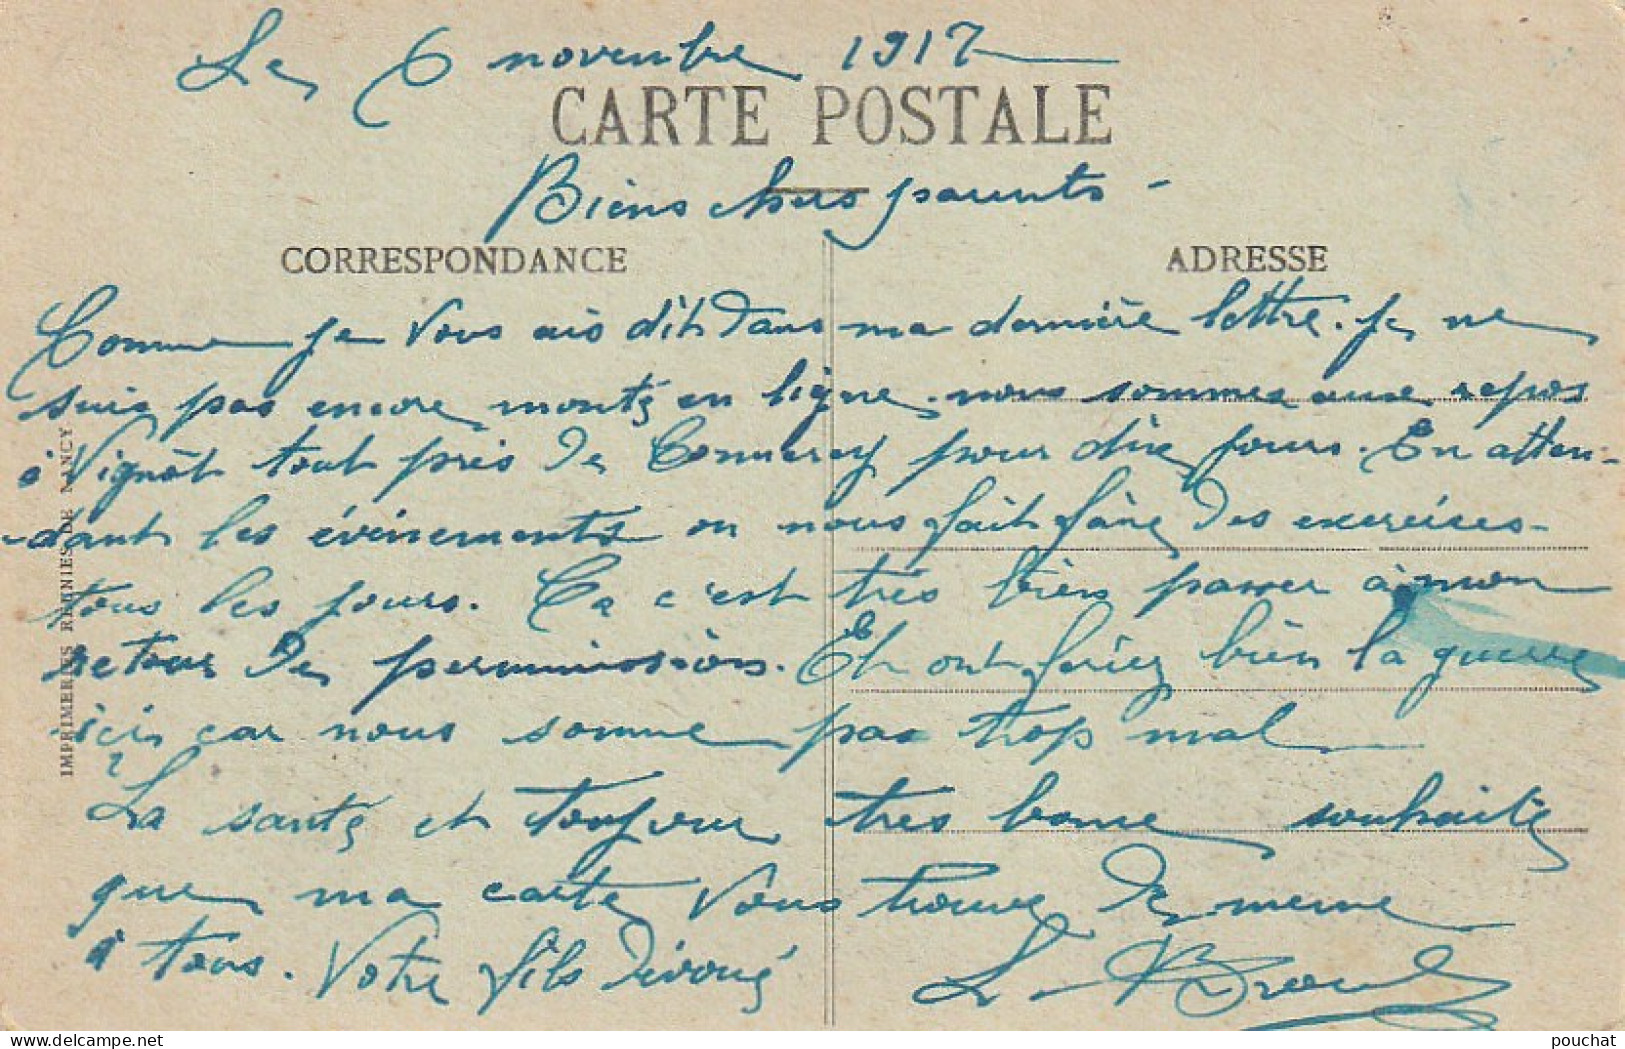 Le 6 novembre 1917
CARTE POSTALE
Biens chers parents -
CORRESPONDANCE
ADRESSE
Comme je vous ais dit dans ma dernière lettre. Je ne
suis pas encore monté en ligne. nous sommes aux repos
à Vignôt tout près de Commercy pour dix jours. En atten-
-dant les événements on nous fait faire des exercises
tous les jours. Ca c'est très bien passer à mon
retour de permission. Et ont feriez bien la guerre
ici car nous somme pas trop mal
La santé et toujour très bonne souhaite
que ma carte vous trouve de meme
à tous. Votre fils dévoué
IMPRIMERIES REUNIES DE NANCY
pouchat